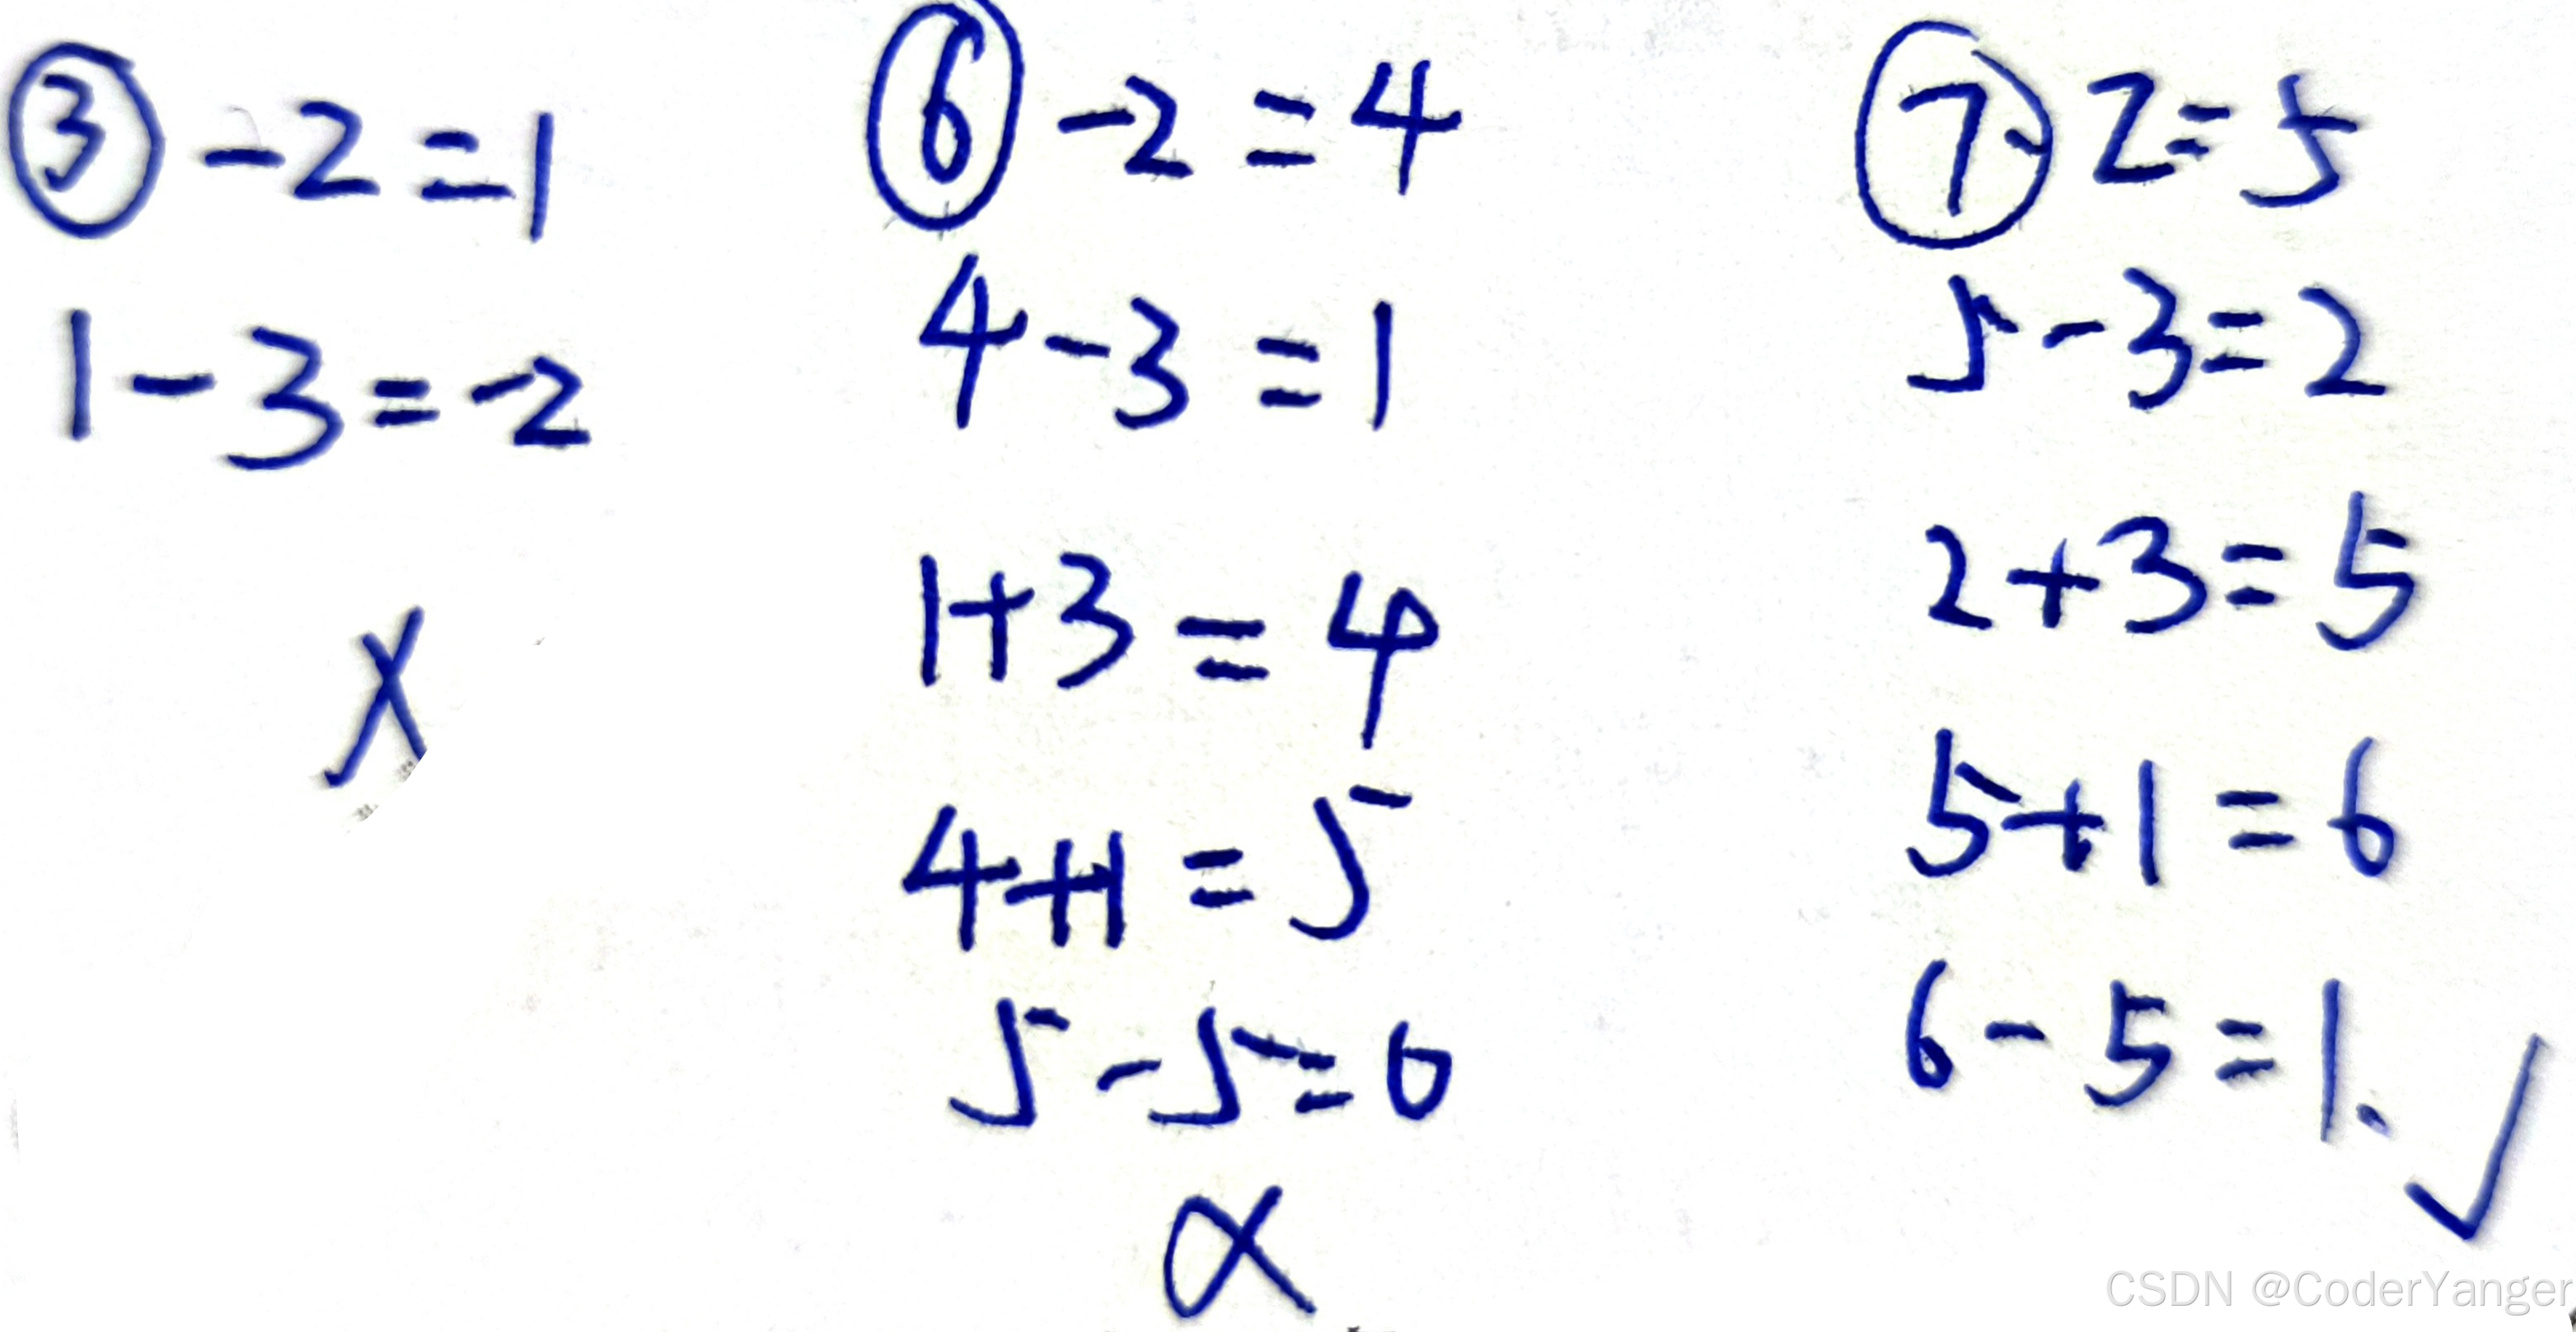 ③ -2=1
1-3=-2
X
⑥ -2=4
4-3=1
1+3=4
4+1=5
5-5=0
X
⑦-2=5
5-3=2
2+3=5
5+1=6
6-5=1.
✓
CSDN @CoderYanger